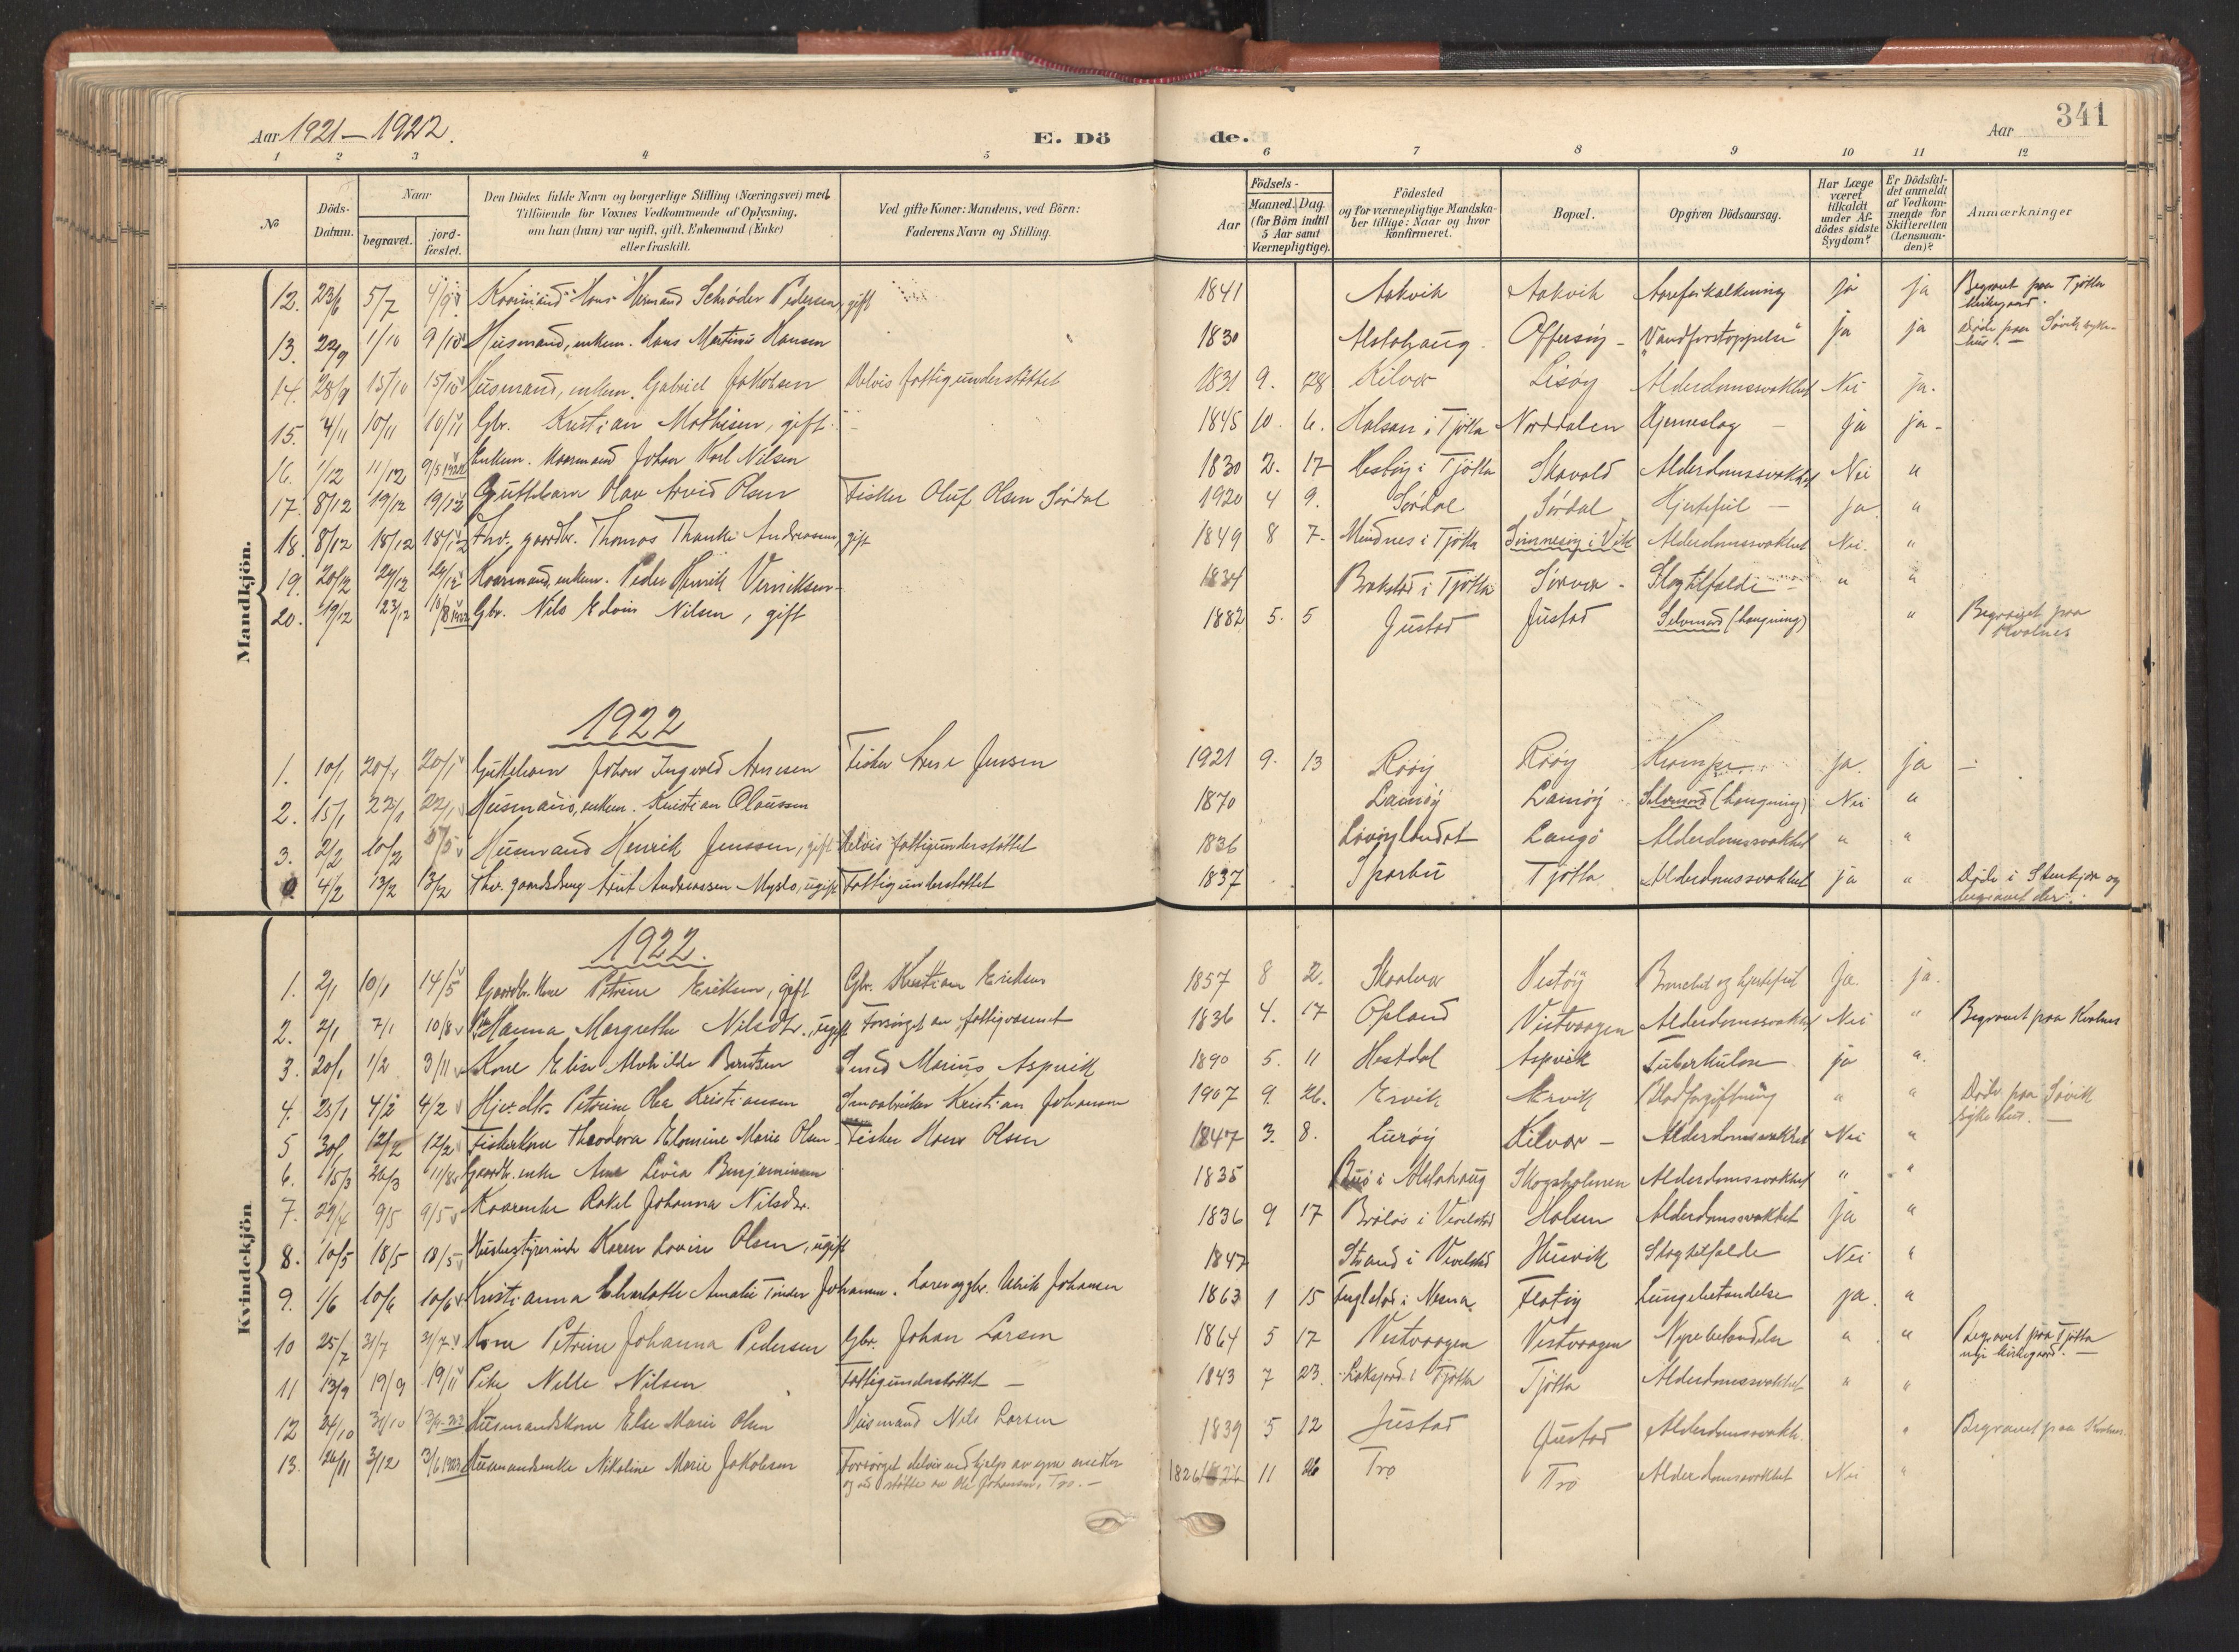 Aar 1921–1922. E. Dö de. Aar 341
1 2 3 4 5 6 7 8 9 10 11 12
No
Döds-
Datum.
Naar
begravet.
jord-
fæstet.
Den Dödes fulde Navn og borgerlige Stilling (Næringsvei) med
Tilföiende for Voxnes Vedkommende af Oplysning,
om han (hun) var ugift, gift, Enkemand (Enke)
eller fraskilt.
Ved gifte Koner: Mandens, ved Börn:
Faderens Navn og Stilling.
Födsels-
Aar
Maaned. Dag.
(for Börn indtil
5 Aar samt
Værnepligtige).
Födested
og for værnepligtige Mandska-
ber tillige: Naar og hvor
konfirmeret.
Bopæl.
Opgiven Dödsaarsag.
Har Læge
været
tilkaldt
under Af-
dödes sidste
Sygdom?
Er Dödsfal-
det anmeldt
af Vedkom-
mende for
Skifteretten
(Lensman-
den)?
Anmærkninger
Mandkjön.
12. 23/6 5/7 4/9 Kaarmand Hans Hermand Schrøder Pedersen, gift 1841 Aakvik Aakvik Aareforkalkning ja ja Begravet paa Tjøtta
kirkegaard.
13. 22/9 1/10 9/10 Husmand, enkem. Hans Martinus Hansen 1830 Alstahaug Offersøy – "Vandforstoppelse" ja ja Døde paa Søvik syke-
hus. –
14. 28/9 15/10 15/10 Husmand, enkem. Gabriel Jakobsen Delvis fattigunderstøttet 1831 9. 28 Kilvær Lisøy Alderdomssvakhet Nei ja.
15. 4/11 10/11 10/11 Gbr. Kristian Mathisen, gift. 1845 10. 6. Halsan i Tjøtta Norddalen Hjerneslag – ja ja –
16. 1/12 11/12 9/5 1922 Enkem. Kaarmand Johan Karl Nilsen 1830 2. 17 Hestøy i Tjøtta Skavold Alderdomssvakhet Nei "
17. 8/12 19/12 19/12 Guttebarn Olav Arvid Olsen Fisker Oluf Olsen Sørdal 1920 4 9. Sørdal Sørdal Hjertefeil – ja "
18. 8/12 18/12 18/12 Fhv. gaardbr. Thomas Thanke Andreassen, gift 1849 8 7. Mindnes i Tjøtta Sønnesøy i Vik Alderdomssvakhet Nei. "
19. 20/12 29/12 29/12 Kaarmand, enkem. Peder Henrik Veriksen – 1834 Brakstad i Tjøtta Sørvær – Slagtilfælde " "
20. 19/12 23/12 10/8 1922 Gbr. Nils Edvin Nilsen, gift 1882 5. 5 Justad Justad Selvmord (hængning) " Begravet paa
Kvalnes
1922
1. 10/1 20/1 20/1 Guttebarn Johan Ingvald Arnesen Fisker Arne Jensen 1921 9. 13 Røøy Røøy Krampe ja. ja –
2. 15/1 22/1 22/1 Husmand, enkem. Kristian Claussen 1870 Lamøy Lamøy Selvmord (hængning) Nei "
3. 2/2 10/2 5/5 Husmand Henrik Jenssen, gift Delvis fattigunderstøttet 1836 Langø Alderdomssvakhet " "
4/2 13/2 13/2 Fhv. gaardsdreng Andreassen Myslo, ugift Fattigunderstøttet 1837 Sparbu Tjøtta Alderdomssvakhet ja " Døde i Stenkjær og
begravet der.
Kvindekjön
1922.
1. 2/1 10/1 14/5 Gaardbr. kone Petrine Eriksen, gift Gbr. Kristian Eriksen 1857 8 2. Skaalvær Vestøy og hjertefeil ja. ja.
2. 2/1 7/1 10/8 Hanna Margrethe Nilsdtr., ugift Forsørget av fattigvæsenet 1836 4. 17 Opland Vistvaagen Alderdomssvakhet Nei " Begravet paa Kvalnes
3. 20/1 1/2 3/11 Kone Elise Alvhilde Berntsen Smed Marius Aspvik 1890 5. 11 Hestdal Aspvik Tuberkulose ja "
4. 25/1 4/2 4/2 Hjev. dtr. Petrine Olea Kristiansen Smaabruker Kristian Johansen 1907 9. 26. Ervik Ervik Blodforgiftning " " Døde paa Søvik
sykehus. –
5 30/1 12/2 12/2 Fiskerkone Theodora Elonine Marie Olsen – Fisker Hans Olsen 1847 3. 8. Lurøy Kilvær – Alderdomssvakhet Nei "
6. 15/3 26/3 11/8 Gaardbr. enke Ane Levia Benjaminsen 1835 i Alstahaug Skogsholmen Alderdomssvakhet " "
7. 29/4 9/5 9/5 Kaarenke Rakel Johanna Nilsdtr. 1836 9 17 Brøløs i Vevelstad Halsen Alderdomssvakhet ja "
8. 10/5 18/5 18/5 Husbestyrerinde Karen Lovise Olsen, ugift 1847 Strand i Vevelstad Husvik Slagtilfælde Nei "
9. 1/6 10/6 10/6 Kristianna Charlotte Amalie Tinder Johansen. Ulrik Johansen 1863 1 15 Fuglstad i Nesna Flatøy Lungebetændelse ja. "
10 25/7 31/7 31/7 Kone Petrine Johanna Pedersen Gbr. Johan Larsen 1864 5 17 Vestvaagen Vestvaagen Nyrebetændelse " " Begravet paa Tjøtta
nye kirkegaard. –
11 13/9 19/9 19/11 Pike Nelle Nilsen Fattigunderstøttet – 1843 7 23. i Tjøtta Tjøtta Alderdomssvakhet " "
12 24/10 31/10 Husmandskone Else Marie Olsen Husmand Nils Larsen 1839 5 12 Justad Justad Alderdomssvakh. " Begravet paa Kvalnes.
13. 26/11 3/12 3/6 1923 Husmandsenke Nikoline Marie Jakobsen Forsørget delvis ved hjelp av egne midler
og ved støtte av Ole Johansen, Tro. – 1826 11 26 Tro Tro Alderdomssvakhet Nei "